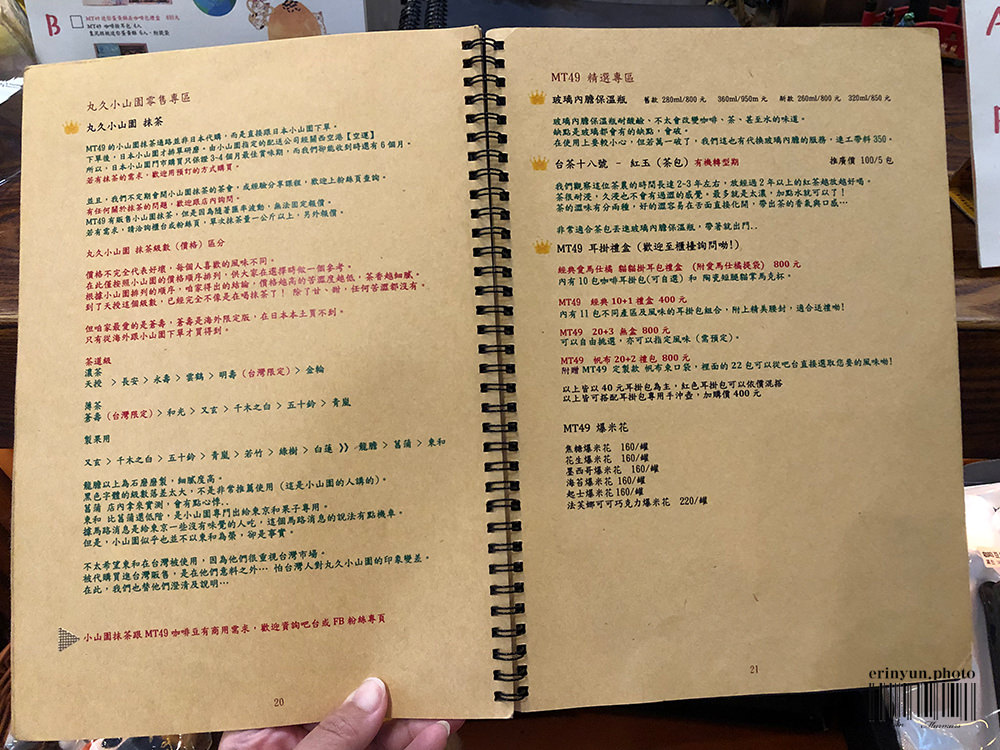 B
MT49 咖啡掛耳包 4入
丸久小山園零售專區
丸久小山園 抹茶
MT49 的小山園抹茶通路並非日本代購,而是直接跟日本小山園下單。
下單後,日本小山園才排單研磨。由小山園指定的配送公司經關西空港【空運】
所以,日本小山園門市購買只保證 3-4 個月最佳賞味期,而我們卻能收到時還有 6 個月。
若有抹茶的需求,歡迎用預訂的方式購買。
並且,我們不定期會開小山園抹茶的茶會,或經驗分享課程,歡迎上粉絲頁查詢。
有任何關於抹茶的問題,歡迎跟店內詢問。
MT49 有販售小山園抹茶,但是因為隨著匯率波動,無法固定報價。
若有需求,請洽詢櫃台或粉絲頁,單次抹茶量一公斤以上,另外報價。
丸久小山園 抹茶級數(價格)區分
價格不完全代表好壞,每個人喜歡的風味不同。
在此僅按照小山園的價格順序排列,供大家在選擇時做一個參考。
根據小山園排列的順序,咱家得出的結論,價格越高的苦澀度越低,茶香越細膩。
到了天授這個級數,已經完全不像是在喝抹茶了! 除了甘、甜,任何苦澀都沒有。
但咱家最愛的是蒼壽,蒼壽是海外限定版,在日本本土買不到。
只有從海外跟小山園下單才買得到。
茶道級
濃茶
天授 > 長安 > 永壽 > 雲鶴 > 明壽(台灣限定)> 金輪
薄茶
蒼壽(台灣限定)> 和光 > 又玄 > 千木之白 > 五十鈴 > 青嵐
製果用
又玄 > 千木之白 > 五十鈴 > 青嵐 > 若竹 > 綠樹 > 白蓮 》》龍膽 > 菖蒲 > 東和
龍膽以上為石磨磨製,細膩度高。
黑色字體的級數落差太大,不是非常推薦使用(這是小山園的人講的)。
菖蒲 店內拿來實測,會有點心悸..
東和 比菖蒲還低階,是小山園專門出給東京和果子專用。
據馬路消息是給東京一些沒有味覺的人吃,這個馬路消息的說法有點機車。
但是,小山園似乎也並不以東和為榮,卻是事實。
不太希望東和在台灣被使用,因為他們很重視台灣市場。
被代購買進台灣販售,是在他們意料之外… 怕台灣人對丸久小山園的印象變差。
在此,我們也替他們澄清及說明…
小山園抹茶跟 MT49 咖啡豆有商用需求,歡迎資詢吧台或 FB 粉絲專頁
20
MT49 精選專區
玻璃內膽保溫瓶 舊款 280ml/800 元 360ml/950m 元 新款 260ml/800 元 320ml/850 元
玻璃內膽保溫瓶耐酸鹼、不太會改變咖啡、茶、甚至水的味道。
缺點是玻璃都會有的缺點,會破。
在使用上要較小心,但若萬一破了,我們這也有代換玻璃內膽的服務,連工帶料 350。
台茶十八號 - 紅玉(茶包)有機轉型期 推廣價 100/5 包
我們觀察這位茶農的時間長達 2-3 年左右,放經過 2 年以上的紅茶越放越好喝。
茶很耐浸,久浸也不會有過澀的感覺。最多就是太濃,加點水就可以了!
茶的溫味有分兩種,好的澀容易在舌面直接化開,帶出茶的香氣與口感…
非常適合茶包丟進玻璃內膽保溫瓶,帶著就出門..
MT49 耳掛禮盒(歡迎至櫃檯詢問呦!)
經典愛馬仕橘 貓貓掛耳包禮盒 (附愛馬仕橘提袋) 800 元
內有 10 包咖啡耳掛包(可自選)和 陶瓷短腿貓掌馬克杯。
MT49 經典 10+1 禮盒 400 元
內有 11 包不同產區及風味的耳掛包組合,附上精美腰封,適合送禮呦!
MT49 20+3 無盒 800 元
可以自由挑選,亦可以指定風味(需預定)。
MT49 帆布 20+2 禮包 800 元
附贈 MT49 定製款 帆布束口袋,裡面的 22 包可以從吧台直接選取您要的風味呦!
以上皆以 40 元耳掛包為主,紅色耳掛包可以依價混搭
以上皆可搭配耳掛包專用手沖壺,加購價 400 元
MT49 爆米花
焦糖爆米花 160/罐
花生爆米花 160/罐
墨西哥爆米花 160/罐
海苔爆米花 160/罐
起士爆米花 160/罐
法芙娜可可巧克力爆米花 220/罐
21
erinyun.photo